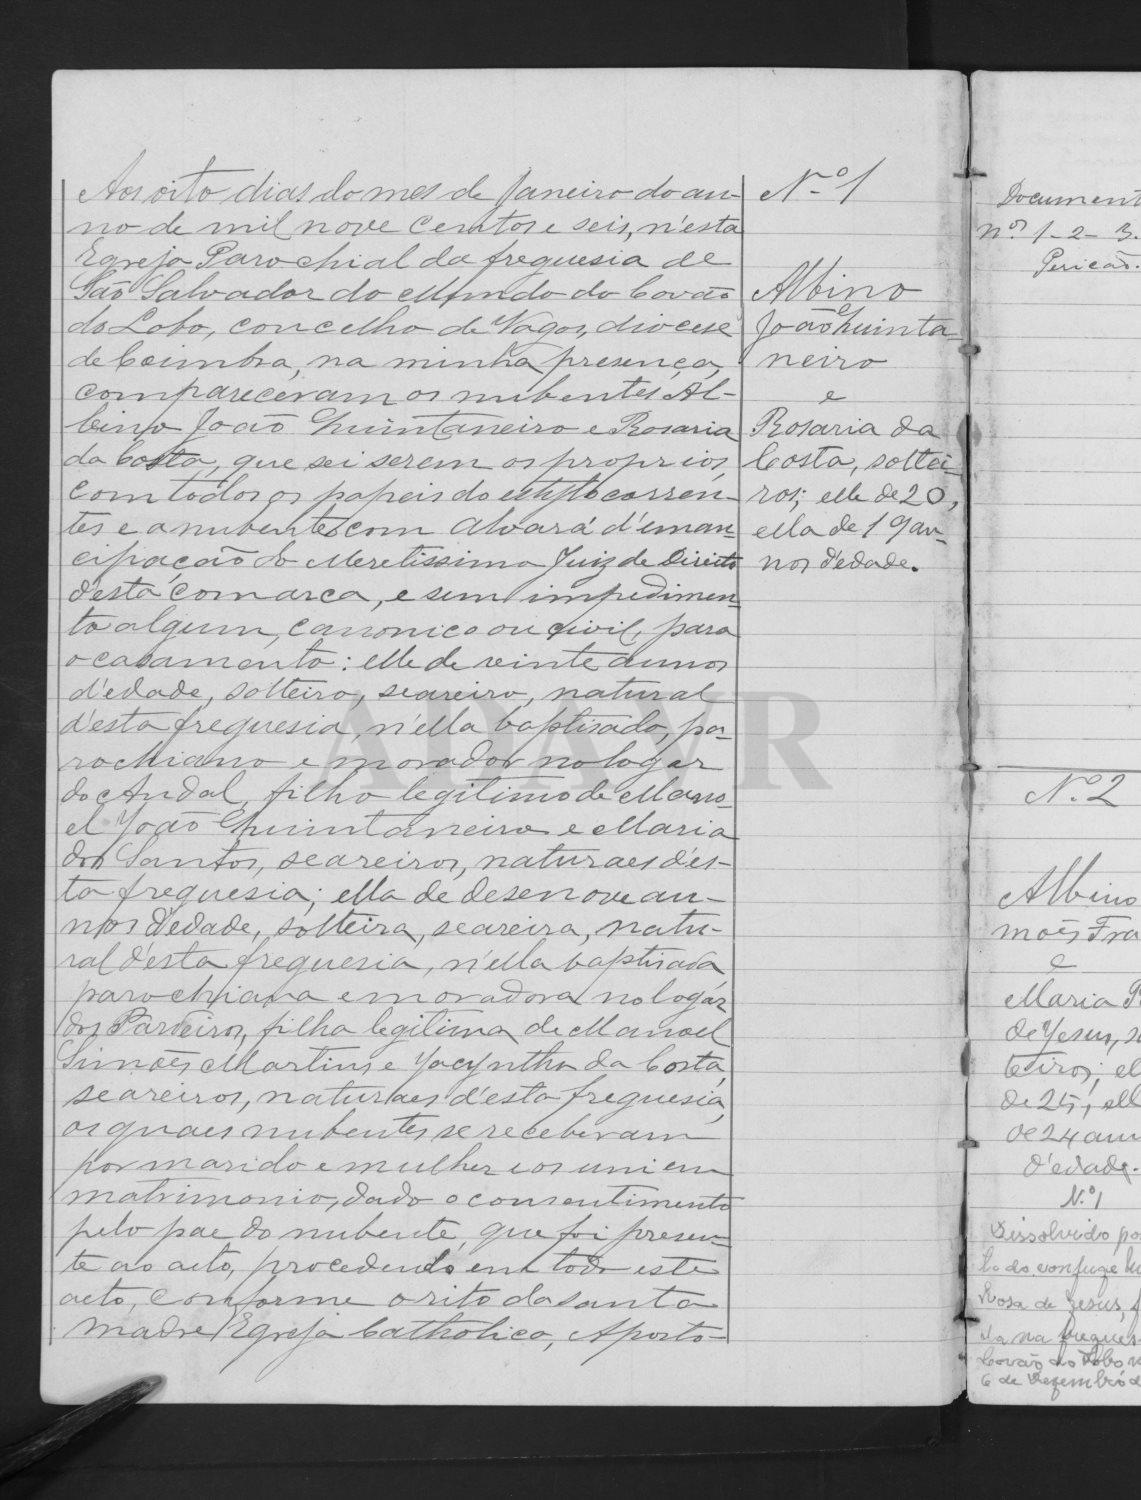 Aos oito dias do mes de Janeiro do an-
no de mil nove centos e seis, n'esta
Egreja Parochial da freguesia de
São Salvador do Mundo do Covão
do Lobo, concelho de Vagos, diocese
de Coimbra, na minha presença,
compareceram os nubentes Al-
bino João Quintaneiro e Rosaria
da Costa, que sei serem os proprios,
com todos os papeis do estylo corren-
tes e a nubente com Alvará d'eman-
cipação do Meretissimo Juiz de Direito
d'esta comarca, e sem impedimen-
to algum, canonico ou civil, para
o casamento: elle de vinte annos
d'edade, solteiro, seareiro, natural
d'esta freguesia, n'ella baptisado, pa-
rochiano e morador no logar
do Andal, filho legitimo de Mano-
el João Quintaneiro e Maria
dos Santos, seareiros, naturaes d'es-
ta freguesia; ella de desenove an-
nos d'edade, solteira, seareira, natu-
ral d'esta freguesia, n'ella baptisada
parochiana e moradora no logar
dos Pardeiros, filha legitima de Manoel
Simões Martins e Jacyntha da Costa,
seareiros, naturaes d'esta freguesia,
os quaes nubentes se receberam
por marido e mulher e os uni em
matrimonio, dado o consentimento
pelo pae do nubente, que foi presen-
te ao acto, procedendo em todo este
acto, conforme o rito da santa
madre Egreja Catholica, Aposto-
Nº 1
Albino
João Quinta-
neiro
e
Rosaria da
Costa, soltei-
ros; elle de 20,
ella de 19 an-
nos d'edade.
Document
nos 1-2-3.
N.º 2
Albino
mões Fra
e
Maria
de Jesus, s
teiros; el
de 25, ell
de 24 ann
d'edade.
N.º 1
Dissolvido po
to do conjuge
Rosa de Jesus, f
da na fregues
Covão do Lobo
6 de Dezembro d
ADAVR